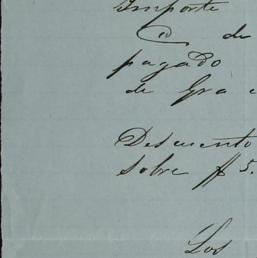 Importe
@ de
pagado
de Gra
Descuento
Sobre $ 5.
Los